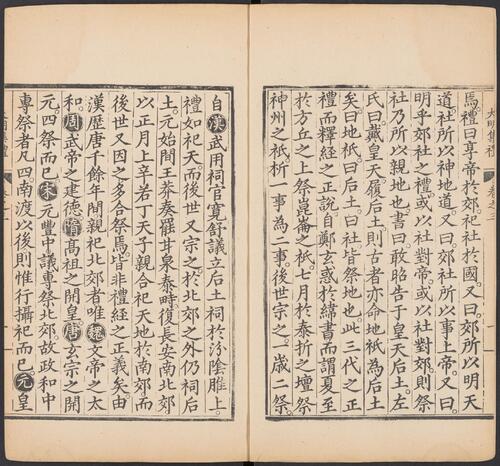 大明集禮
卷之二
焉禮曰享帝於郊祀社於國。又曰郊所以明天
道。社所以神地道。又曰郊社所以事上帝。又曰。
明乎郊社之禮。或以社對帝。或以社對郊。則祭
社乃所以親地也。書曰敢昭告于皇天后土。左
氏曰。戴皇天履后土。則古者亦命地祇為后土
矣。曰地祇。曰后土。曰社皆祭地也。此三代之正
禮。而釋經之正說。自鄭玄惑於緯書。而謂夏至
於方丘之上。祭崑崙之祇。七月於泰折之壇。祭
神州之祇。析一事為二事。後世宗之。歲二祭。
自漢武用祠官寬舒議。立后土祠於汾陰脽上。
禮如祀天。而後世又宗之。於北郊之外仍祠后
土。元始間王莽奏罷甘泉泰畤。復長安南北郊
以正月上辛若丁。天子親合祀天地於南郊。而
後世又因之多合祭焉。皆非禮經之正義矣。由
漢歷唐千餘年間。親祀北郊者。唯魏文帝之太
和。周武帝之建德。隋高祖之開皇。唐玄宗之開
元。四祭而已。宋元豐中議專祭北郊。故政和中
專祭者凡四。南渡以後則惟行攝祀而已。元皇